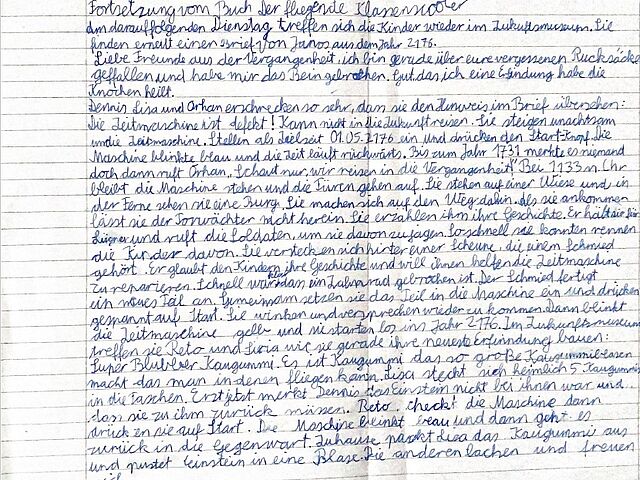 Fortsetzung vom Buch Der fliegende Klassen
Am darauffolgenden Dienstag treffen sich die Kinder wieder im Zukunftsmuseum. Sie
finden erneut einen Brief von Janos aus dem Jahr 2176.
"Liebe Freunde aus der Vergangenheit. ich bin gerade über eure vergessenen Rucksäcke
gefallen und habe mir das Bein gebrochen. Gut, das ich eine Erfindung habe die
Knochen heilt.
Dennis Lisa und Orhan erschrecken so sehr, dass sie den Hinweis im Brief übersehen:
Die Zeitmaschine ist defekt! Kann nicht in die Zukunft reisen. Sie steigen unachtsam
in die Zeitmaschine. Stellen als Zielzeit 01.05.2176 ein und drücken den Start-Knopf. Die
Maschine blinkte blau und die Zeit läuft rückwärts. Bis zum Jahr 1731 merkte es niemand
doch dann ruft Orhan, Schaut nur, wir reisen in die Vergangenheit!" Bei 1133 n. Chr
bleibt die Maschine stehen und die Türen gehen auf. Sie stehen auf einer Wiese und in
der Ferne sehen sie eine Burg. Sie machen sich auf den Weg dahin. Als sie ankommen
lässt sie der Torwächter nicht herein. Sie erzählen ihm ihre Geschichte. Er hält sie für
Lügner und ruft die Soldaten, um sie davon zu jagen. So schnell sie konnten rennen
die Kinder davon. Sie verstecken sich hinter einer Scheune, die einem Schmied
gehört. Er glaubt den Kindern ihre Geschichte und will ihnen helfen die Zeitmaschine
zu reparieren. Schnell war klar dass ein Zahnrad gebrochen ist. Der Schmied fertigt
ein neues Teil an. Gemeinsam setzen sie das Teil in die Maschine ein und drücken
gespannt auf Start. Sie winken und versprechen wieder zu kommen. Dann blinkt
die Zeitmaschine gelb und sie starten los ins Jahr 2176. Im Zukunftsmuseum
treffen sie Reto und wie sie gerade ihre neueste Erfindung bauen:
Super Blubber Kaugummi. Es ist Kaugummi das so große Kaugummiblasen
macht das man in denen fliegen kann. Lisa steckt sich heimlich 5 Kaugummis
in die Taschen. Erst jetzt merkt Dennis das Einstein nicht bei ihnen war und
dass sie zu ihm zurück müssen. Reto check! die Maschine dann
drücken sie auf Start. Die Maschine blinkt und dann geht es
zurück in die Gegenwart. Zuhause packt Lisa das Kaugummi aus
und pustet Einstein in eine Blase. Die anderen lachen und freuen